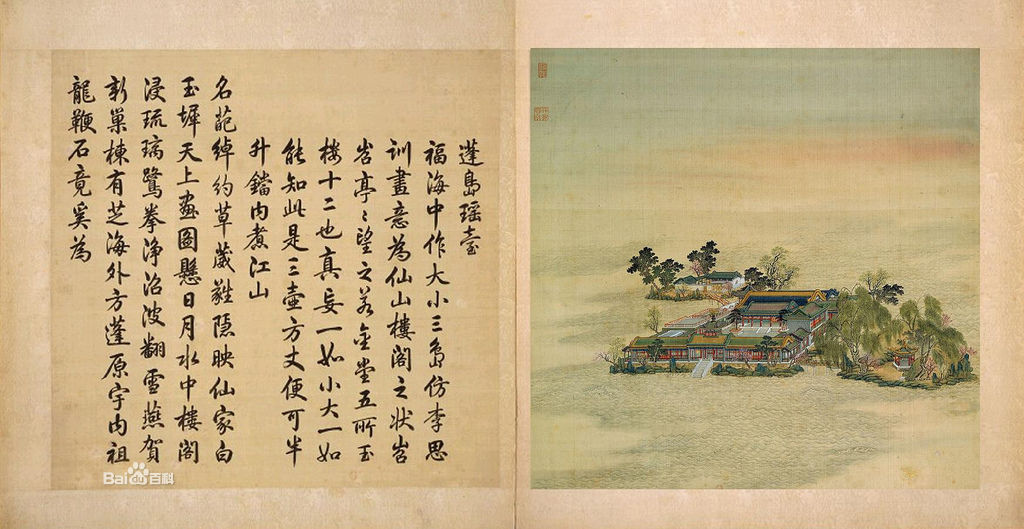 蓬島瑶臺
福海中作大小三島仿李思
訓畫意為仙山樓閣之狀岧
岧亭〻望之若金堂五所玉
樓十二也真妄一如小大一如
能知此是三壺方丈便可半
升鐺内煮江山
名葩綽約草葳蕤隱映仙家白
玉墀天上畫圖懸日月水中樓閣
浸琉璃鷺拳淨沼波翻雪燕賀
新巢棟有芝海外方蓬原宇内祖
龍鞭石竟奚為
Bai百科